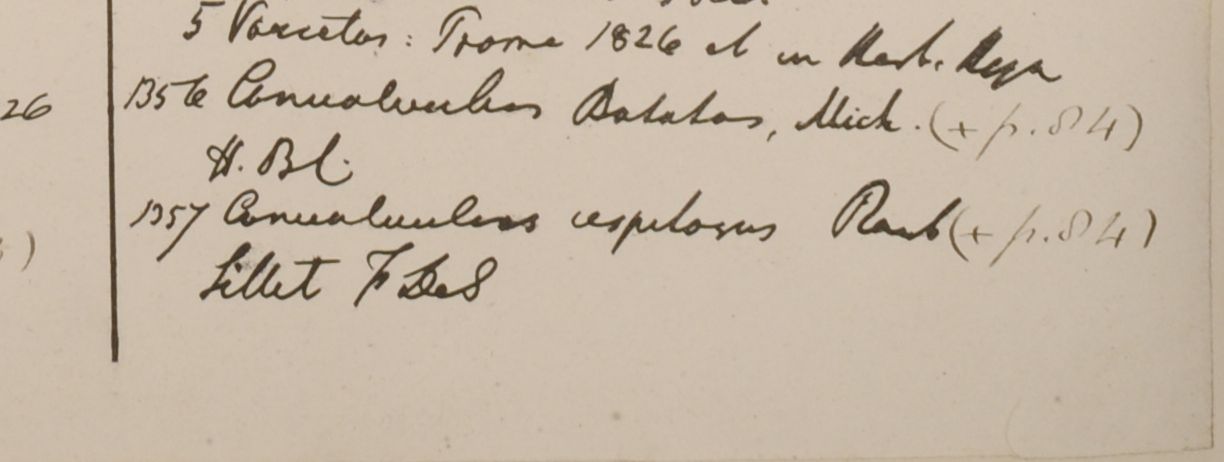 5 Varietas: Prome 1826 et in Herb.
26
1356 Convolvulus Batatas, Mich. (+ p. 84)
H. Bl.
1357 Convolvulus cespitosus Roxb (+ p. 84)
)
Sillet F De S